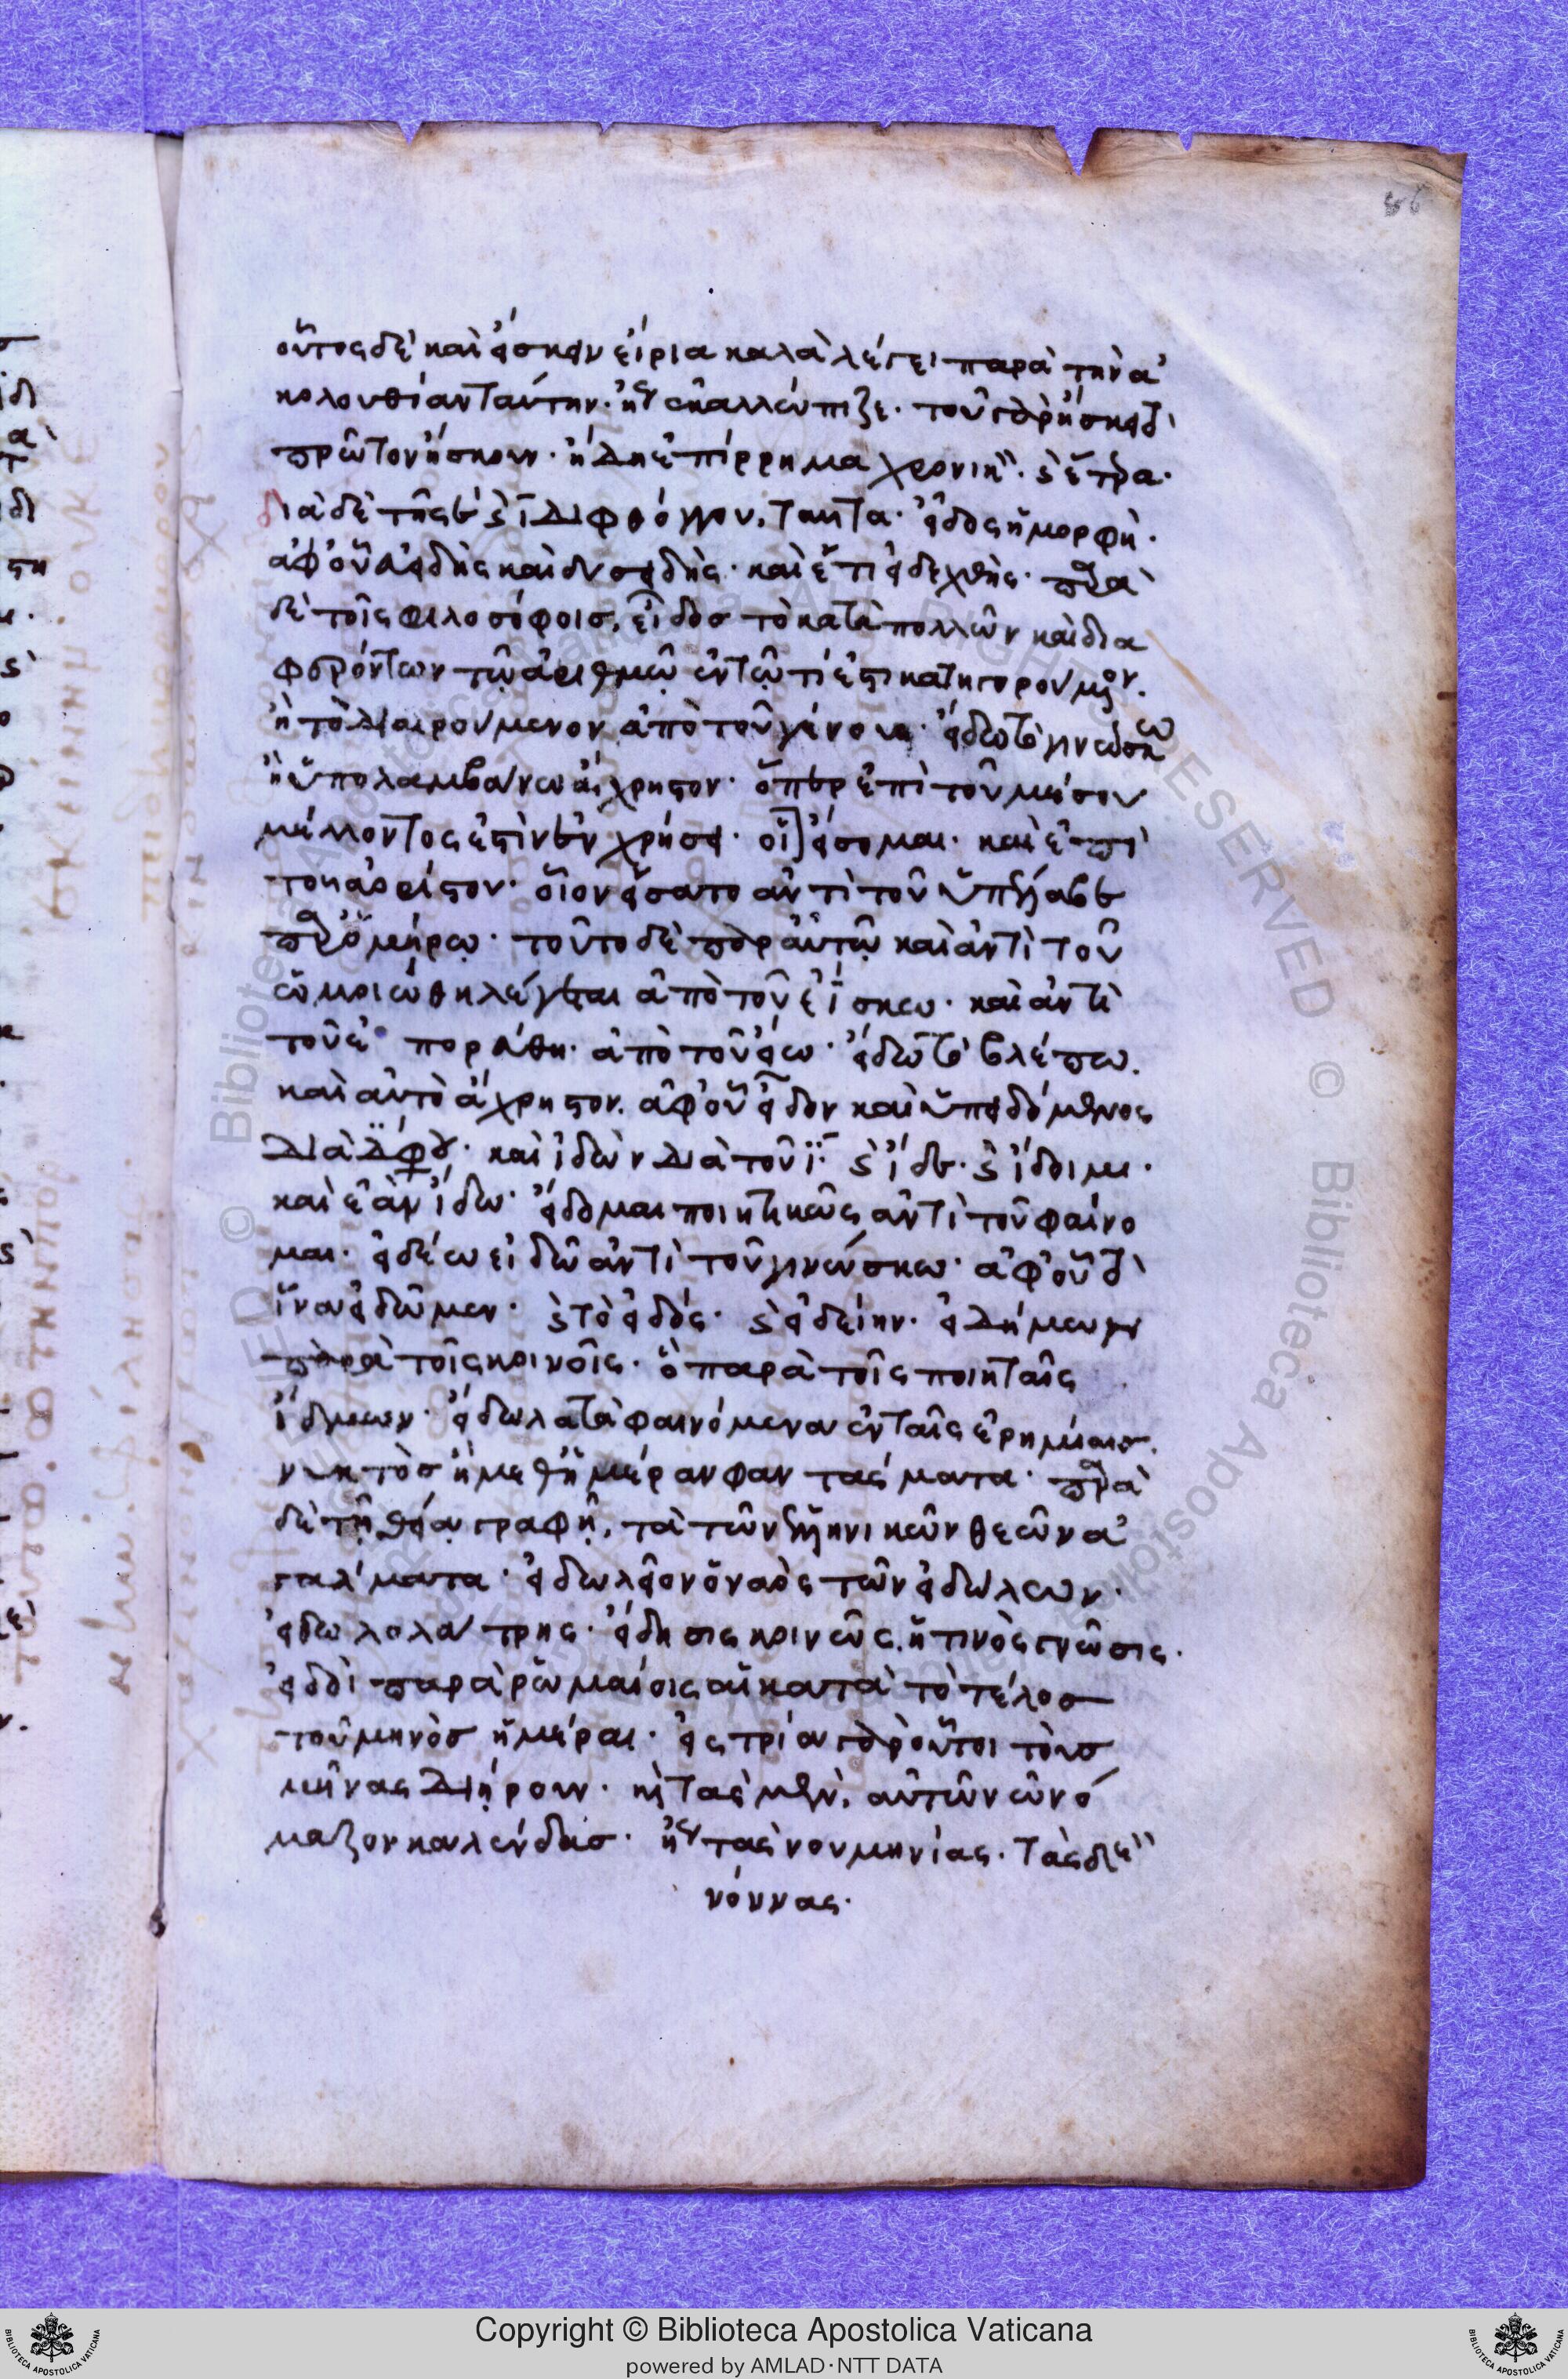 86
οὗτος δὲ καὶ ἤσκειν εἴρια καλὰ λέγει παρὰ τὴν ἀ
κολουθίαν ταύτην. ἤγουν ἐκαλλώπιζε. τοῦ γὰρ ἤσκει τὸ
πρῶτον ἤσκουν. ἤδη ἐπίρρημα χρονικόν. καὶ ἕτερα.
διὰ δὲ τῆς ε καὶ ι διφθόγγου, ταῦτα. εἶδος ἡ μορφή.
ἀφ' οὗ ἀειδὴς καὶ δυσειδής. καὶ ἔτι εἰδεχθής. παρὰ
δὲ τοῖς φιλοσόφοις, εἶδος τὸ κατὰ πολλῶν καὶ δια
φερόντων τῷ ἀριθμῷ ἐν τῷ τί ἐστι κατηγορούμενον.
ἢ τὸ διαιρούμενον ἀπὸ τοῦ γένους. εἴδω τὸ γινώσκω
ἢ ὑπολαμβάνω ἄχρηστον. ὅπερ ἐπὶ τοῦ μέσου
μέλλοντος ἐστὶν ἐν χρήσει. οἷον εἴσομαι. καὶ ἐπὶ
τοῦ ἀορίστου. οἷον εἴσατο ἀντὶ τοῦ ὑπέλαβε
παρ' ὁμήρῳ. τοῦτο δὲ παρ' αὐτῷ καὶ ἀντὶ τοῦ
ὡμοιώθη λέγεται ἀπὸ τοῦ ἐΐσκω. καὶ ἀντὶ
τοῦ ἐπορεύθη. ἀπὸ τοῦ εἴω. εἴδω τὸ βλέπω.
καὶ αὐτὸ ἄχρηστον. ἀφ' οὗ εἶδον καὶ ὑπειδόμενος
διὰ διφθόγγου. καὶ ἰδὼν διὰ τοῦ ϊ. καὶ ἴδε. καὶ ἴδοιμι.
καὶ ἐὰν ἴδω. εἴδομαι ποιητικῶς ἀντὶ τοῦ φαίνο
μαι. εἰδέω εἰδῶ ἀντὶ τοῦ γινώσκω. ἀφ' οὗ τὸ
ἵνα εἰδῶμεν. καὶ τὸ εἰδώς. καὶ εἰδείην. εἰδήμων
παρὰ τοῖς κοινοῖς. ὃ παρὰ τοῖς ποιηταῖς
ἴδμων. εἴδωλα τὰ φαινόμενα ἐν ταῖς ἐρημίαις.
νυκτὸς ἢ μεθ' ἡμέραν φαντάσματα. παρὰ
δὲ τῇ θείᾳ γραφῇ, τὰ τῶν ἑλληνικῶν θεῶν ἀ
γάλματα. εἰδωλεῖον ὁ ναὸς τῶν εἰδώλων.
εἰδωλολάτρης. εἴδησις κοινῶς, ἥ τινὸς γνῶσις.
εἰδοὶ παρὰ ῥωμαίοις αἱ κατὰ τὸ τέλος
τοῦ μηνὸς ἡμέραι. εἰς τρία γὰρ οὗτοι τοὺς
μῆνας διῄρουν. καὶ τὰς μὲν, αὐτῶν ὠνό
μαζον καλένδας. ἤγουν τὰς νουμηνίας. τὰς δὲ
νόννας.
Copyright © Biblioteca Apostolica Vaticana
powered by AMLAD·NTT DATA